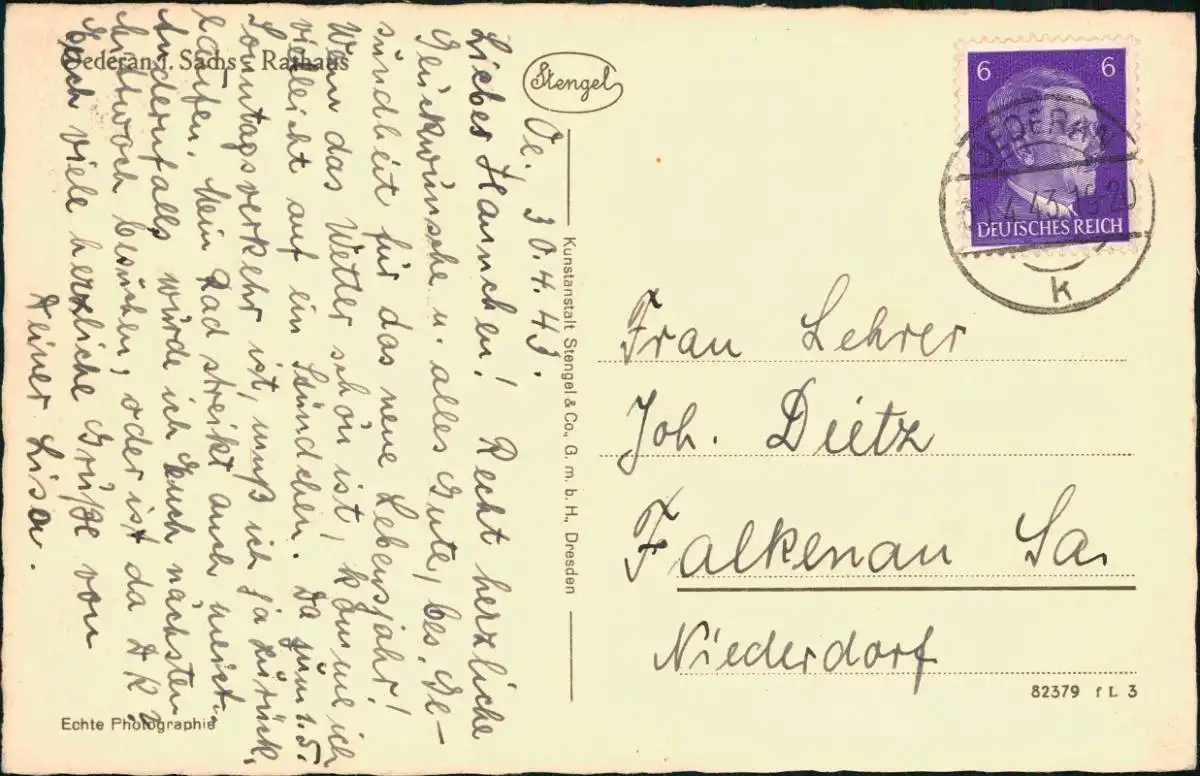 Oederan i. Sachs. Rathaus
Stengel
Oe. 30.4.43.
Liebes Hannchen! Recht herzliche
Glückwünsche u. alles Gute, bes. Ge-
sundheit für das neue Lebensjahr!
Wenn das Wetter schön ist, komme ich
vielleicht auf ein Stündchen. Da zum 1.5.
Sonntagsverkehr ist, muß ich ja zurück
laufen. Mein Rad streikt auch meist.
Andernfalls würde ich Euch nächsten
Mittwoch besuchen, oder ist da D.R.K.?
Euch viele herzliche Grüße von
Deiner Lisa.
Echte Photographie
Kunstanstalt Stengel & Co., G. m. b. H., Dresden
6 6
DEUTSCHES REICH
OEDERAN
30.4.43.19-20
k
Frau Lehrer
Joh. Dietz
Falkenau Sa.
Niederdorf
82379 f L 3